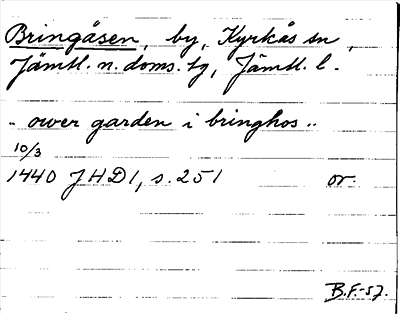 Bringåsen, by, Kyrkås sn,
Jämtl. n. doms. tg, Jämtl. l.
.. ower garden i bringhos ..
10/3
1440 JHD1, s. 251 or.
B.F.-57.